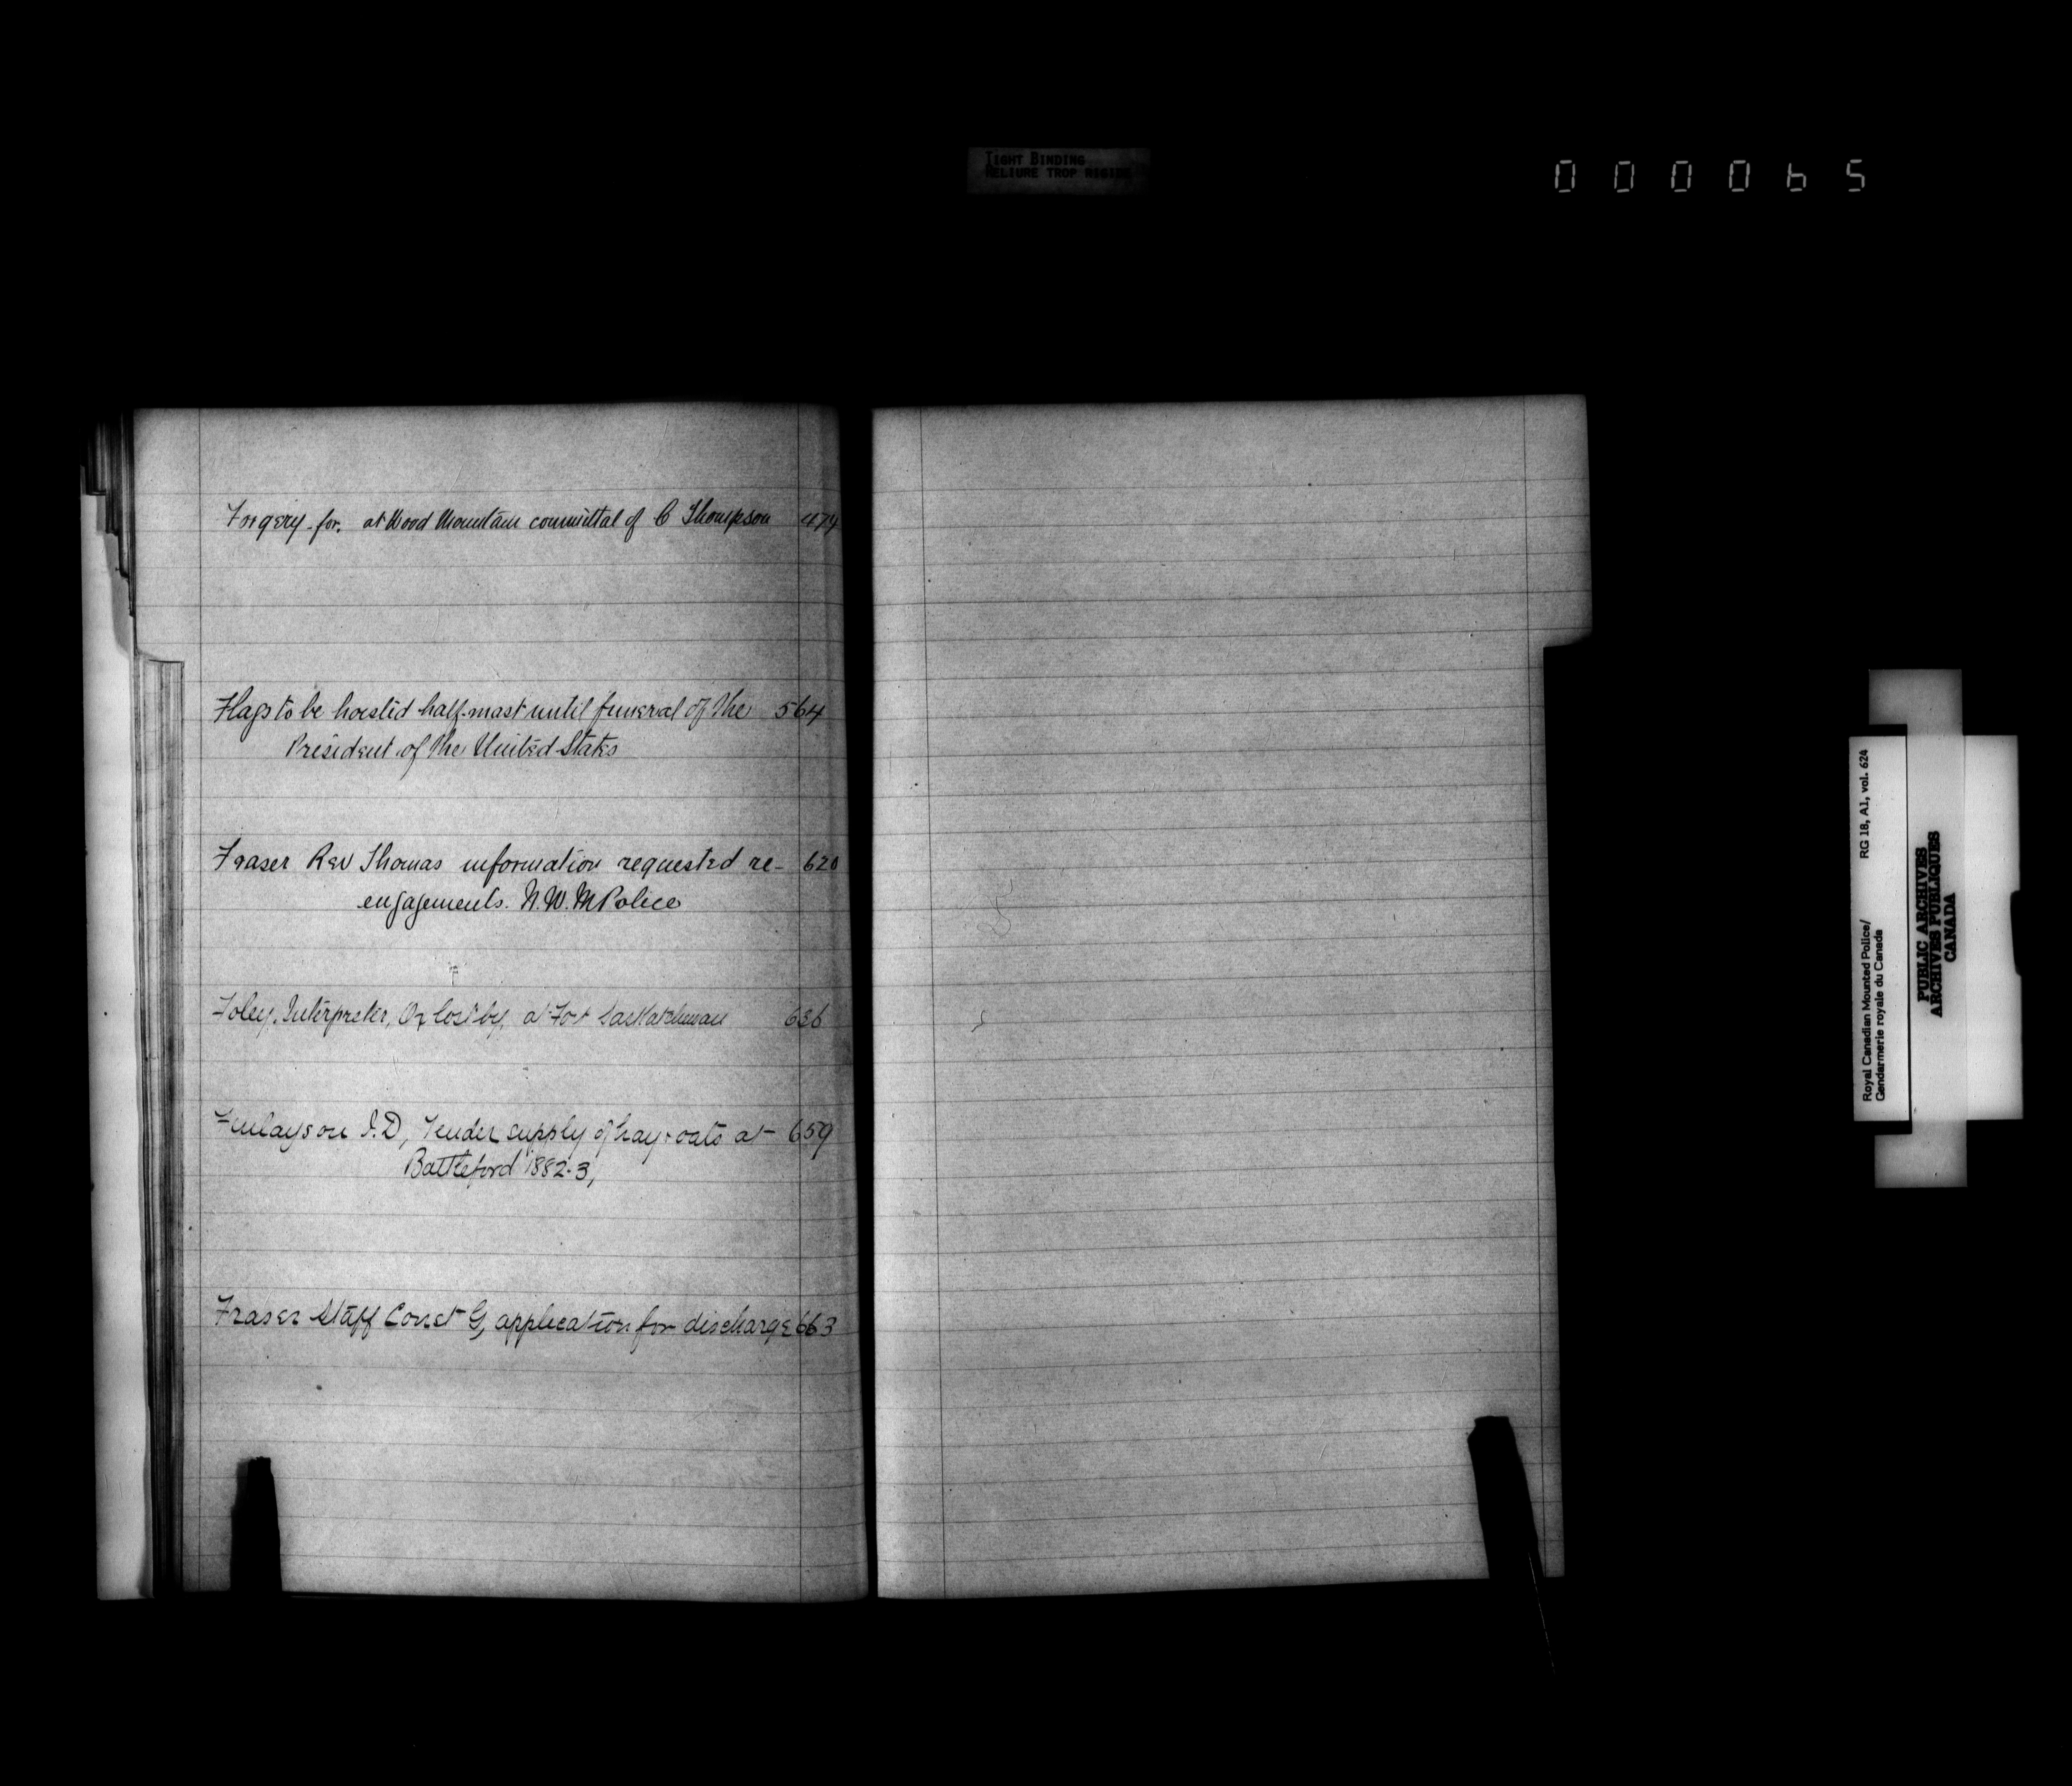 TIGHT BINDING
RELIURE TROP RIGIDE
000065
Forgery for. at Wood Mountain committal of C Thompson 474
Flags to be hoisted half-mast until funeral of the 564
President of the United States
Fraser Rev Thomas information requested re- 620
engagements. N.W.M Police
Foley, Interpreter, Ox lost by, at Fort Saskatchewan 636
Finlayson J.D, Tender supply of hay & oats at 659
Battleford 1882-3,
Fraser Staff Const G, application for discharge 663
Royal Canadian Mounted Police/ RG 18, A1, vol. 624
Gendarmerie royale du Canada
PUBLIC ARCHIVES
ARCHIVES PUBLIQUES
CANADA